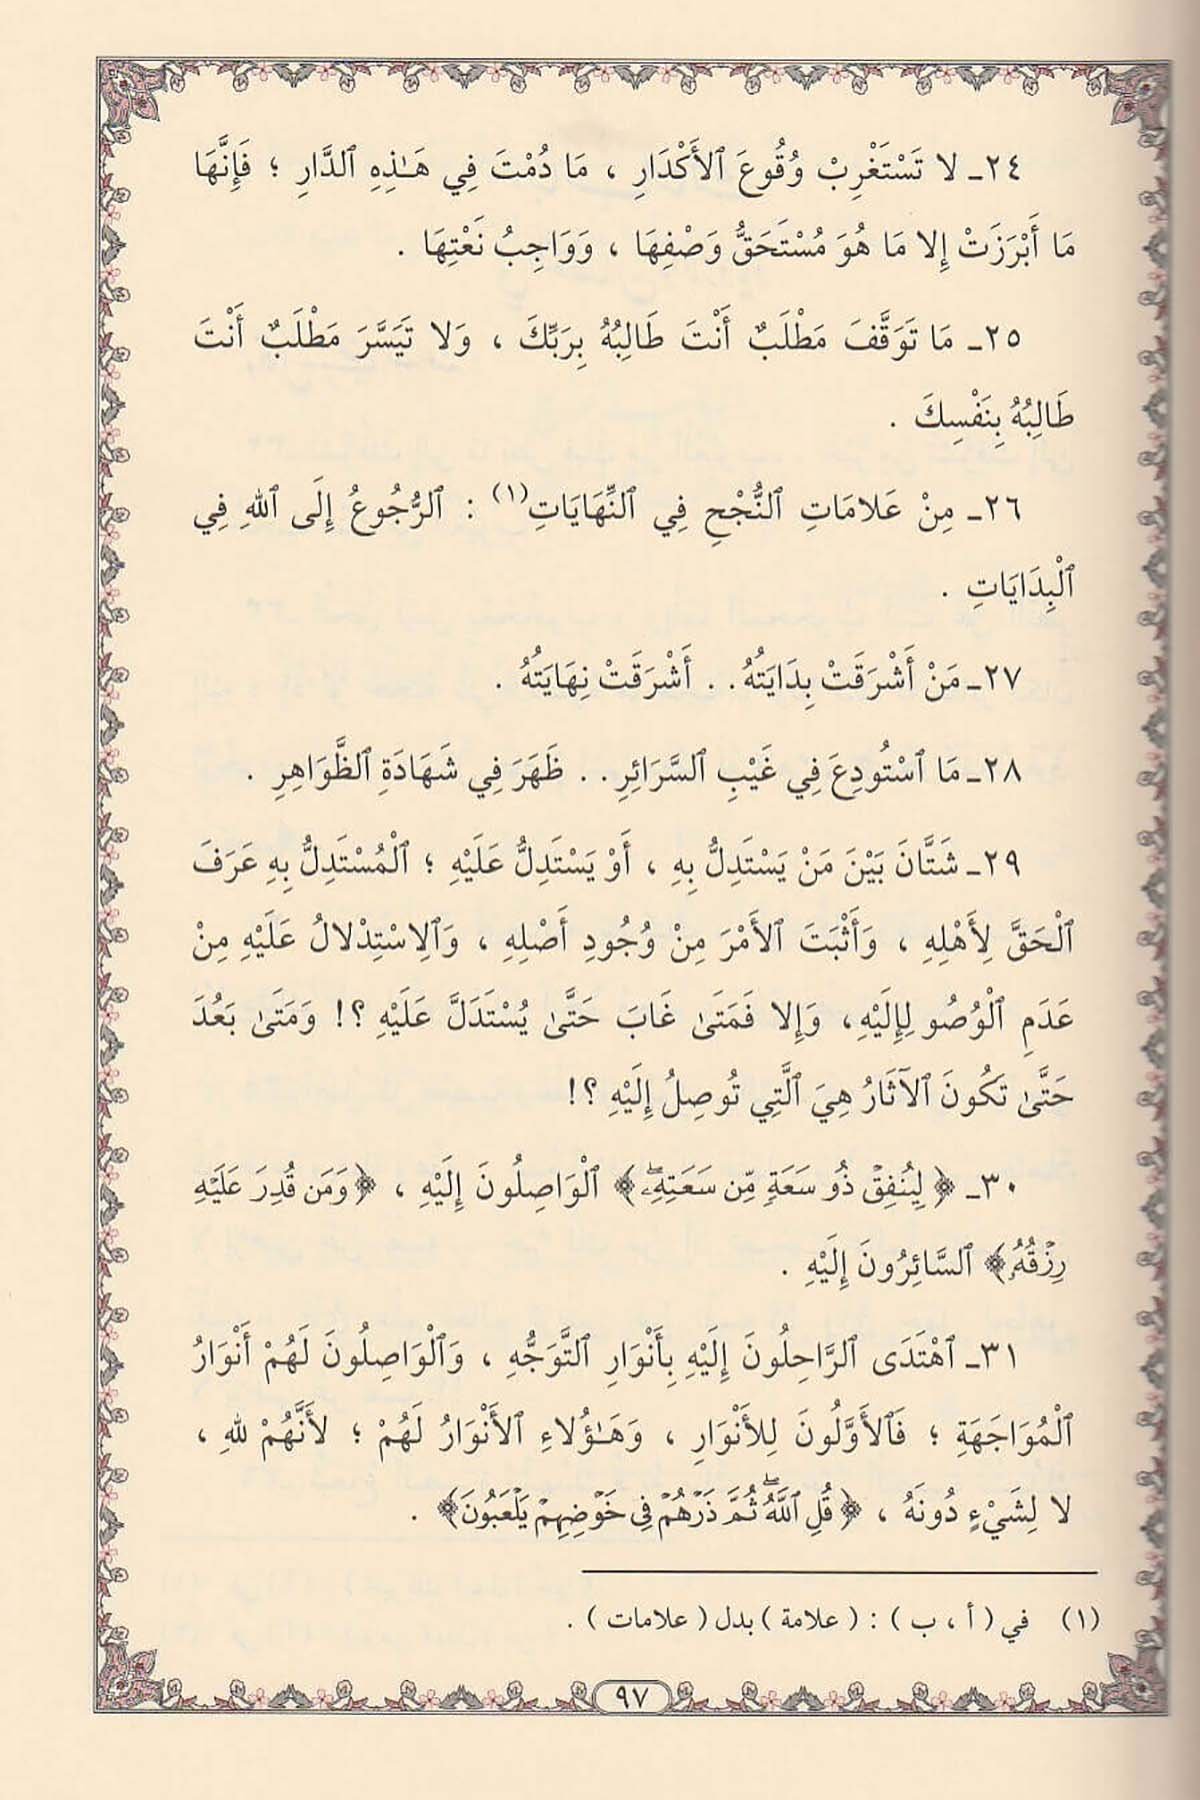 ٢٤ـ لا تَسْتَغْرِبْ وُقُوعَ ٱلأَكْدَارِ ، مَا دُمْتَ فِي هَـٰذِهِ ٱلدَّارِ ؛ فَإِنَّهَا
مَا أَبْرَزَتْ إِلا مَا هُوَ مُسْتَحَقُّ وَصْفِهَا ، وَوَاجِبُ نَعْتِهَا .
٢٥ـ مَا تَوَقَّفَ مَطْلَبٌ أَنْتَ طَالِبُهُ بِرَبِّكَ ، وَلا تَيَسَّرَ مَطْلَبٌ أَنْتَ
طَالِبُهُ بِنَفْسِكَ .
٢٦ـ مِنْ عَلامَاتِ ٱلنُّجْحِ فِي ٱلنِّهَايَاتِ(١) : ٱلرُّجُوعُ إِلَى ٱللهِ فِي
ٱلْبِدَايَاتِ .
٢٧ـ مَنْ أَشْرَقَتْ بِدَايَتُهُ . . أَشْرَقَتْ نِهَايَتُهُ .
٢٨ـ مَا ٱسْتُودِعَ فِي غَيْبِ ٱلسَّرَائِرِ . . ظَهَرَ فِي شَهَادَةِ ٱلظَّوَاهِرِ .
٢٩ـ شَتَّانَ بَيْنَ مَنْ يَسْتَدِلُّ بِهِ ، أَوْ يَسْتَدِلُّ عَلَيْهِ ؛ ٱلْمُسْتَدِلُّ بِهِ عَرَفَ
ٱلْحَقَّ لِأَهْلِهِ ، وَأَثْبَتَ ٱلأَمْرَ مِنْ وُجُودِ أَصْلِهِ ، وَٱلِاسْتِدْلالُ عَلَيْهِ مِنْ
عَدَمِ ٱلْوُصُو لِإِلَيْهِ، وَإِلا فَمَتَىٰ غَابَ حَتَّىٰ يُسْتَدَلَّ عَلَيْهِ ؟! وَمَتَىٰ بَعُدَ
حَتَّىٰ تَكُونَ ٱلآثَارُ هِيَ ٱلَّتِي تُوصِلُ إِلَيْهِ ؟!
٣٠ـ ﴿ لِيُنفِقْ ذُو سَعَةٍ مِّن سَعَتِهِۦۖ ﴾ ٱلْوَاصِلُونَ إِلَيْهِ ، ﴿ وَمَن قُدِرَ عَلَيْهِ
رِزْقُهُۥ ﴾ ٱلسَّائِرُونَ إِلَيْهِ .
٣١ـ ٱهْتَدَى ٱلرَّاحِلُونَ إِلَيْهِ بِأَنْوَارِ ٱلتَّوَجُّهِ ، وَٱلْوَاصِلُونَ لَهُمْ أَنْوَارُ
ٱلْمُوَاجَهَةِ ؛ فَٱلأَوَّلُونَ لِلأَنْوَارِ ، وَهَـٰؤُلاءِ ٱلأَنْوَارُ لَهُمْ ؛ لأَنَّهُمْ للهِ ،
لا لِشَيْءٍ دُونَهُ ، ﴿ قُلِ ٱللَّهُۖ ثُمَّ ذَرْهُمْ فِي خَوْضِهِمْ يَلْعَبُونَ ﴾ .
(١) في ( أ ، ب ) : ( علامة ) بدل ( علامات ) .
٩٧